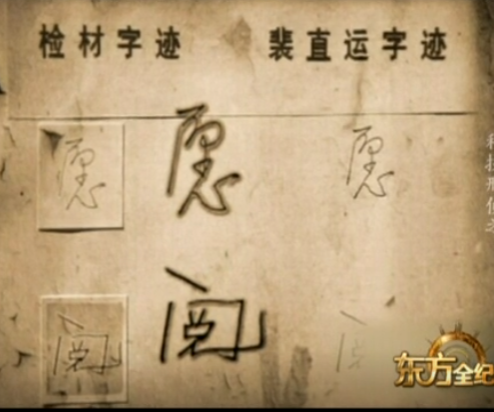 检材字迹 裴直运字迹
愿 愿 愿
阅 阅
东方全纪